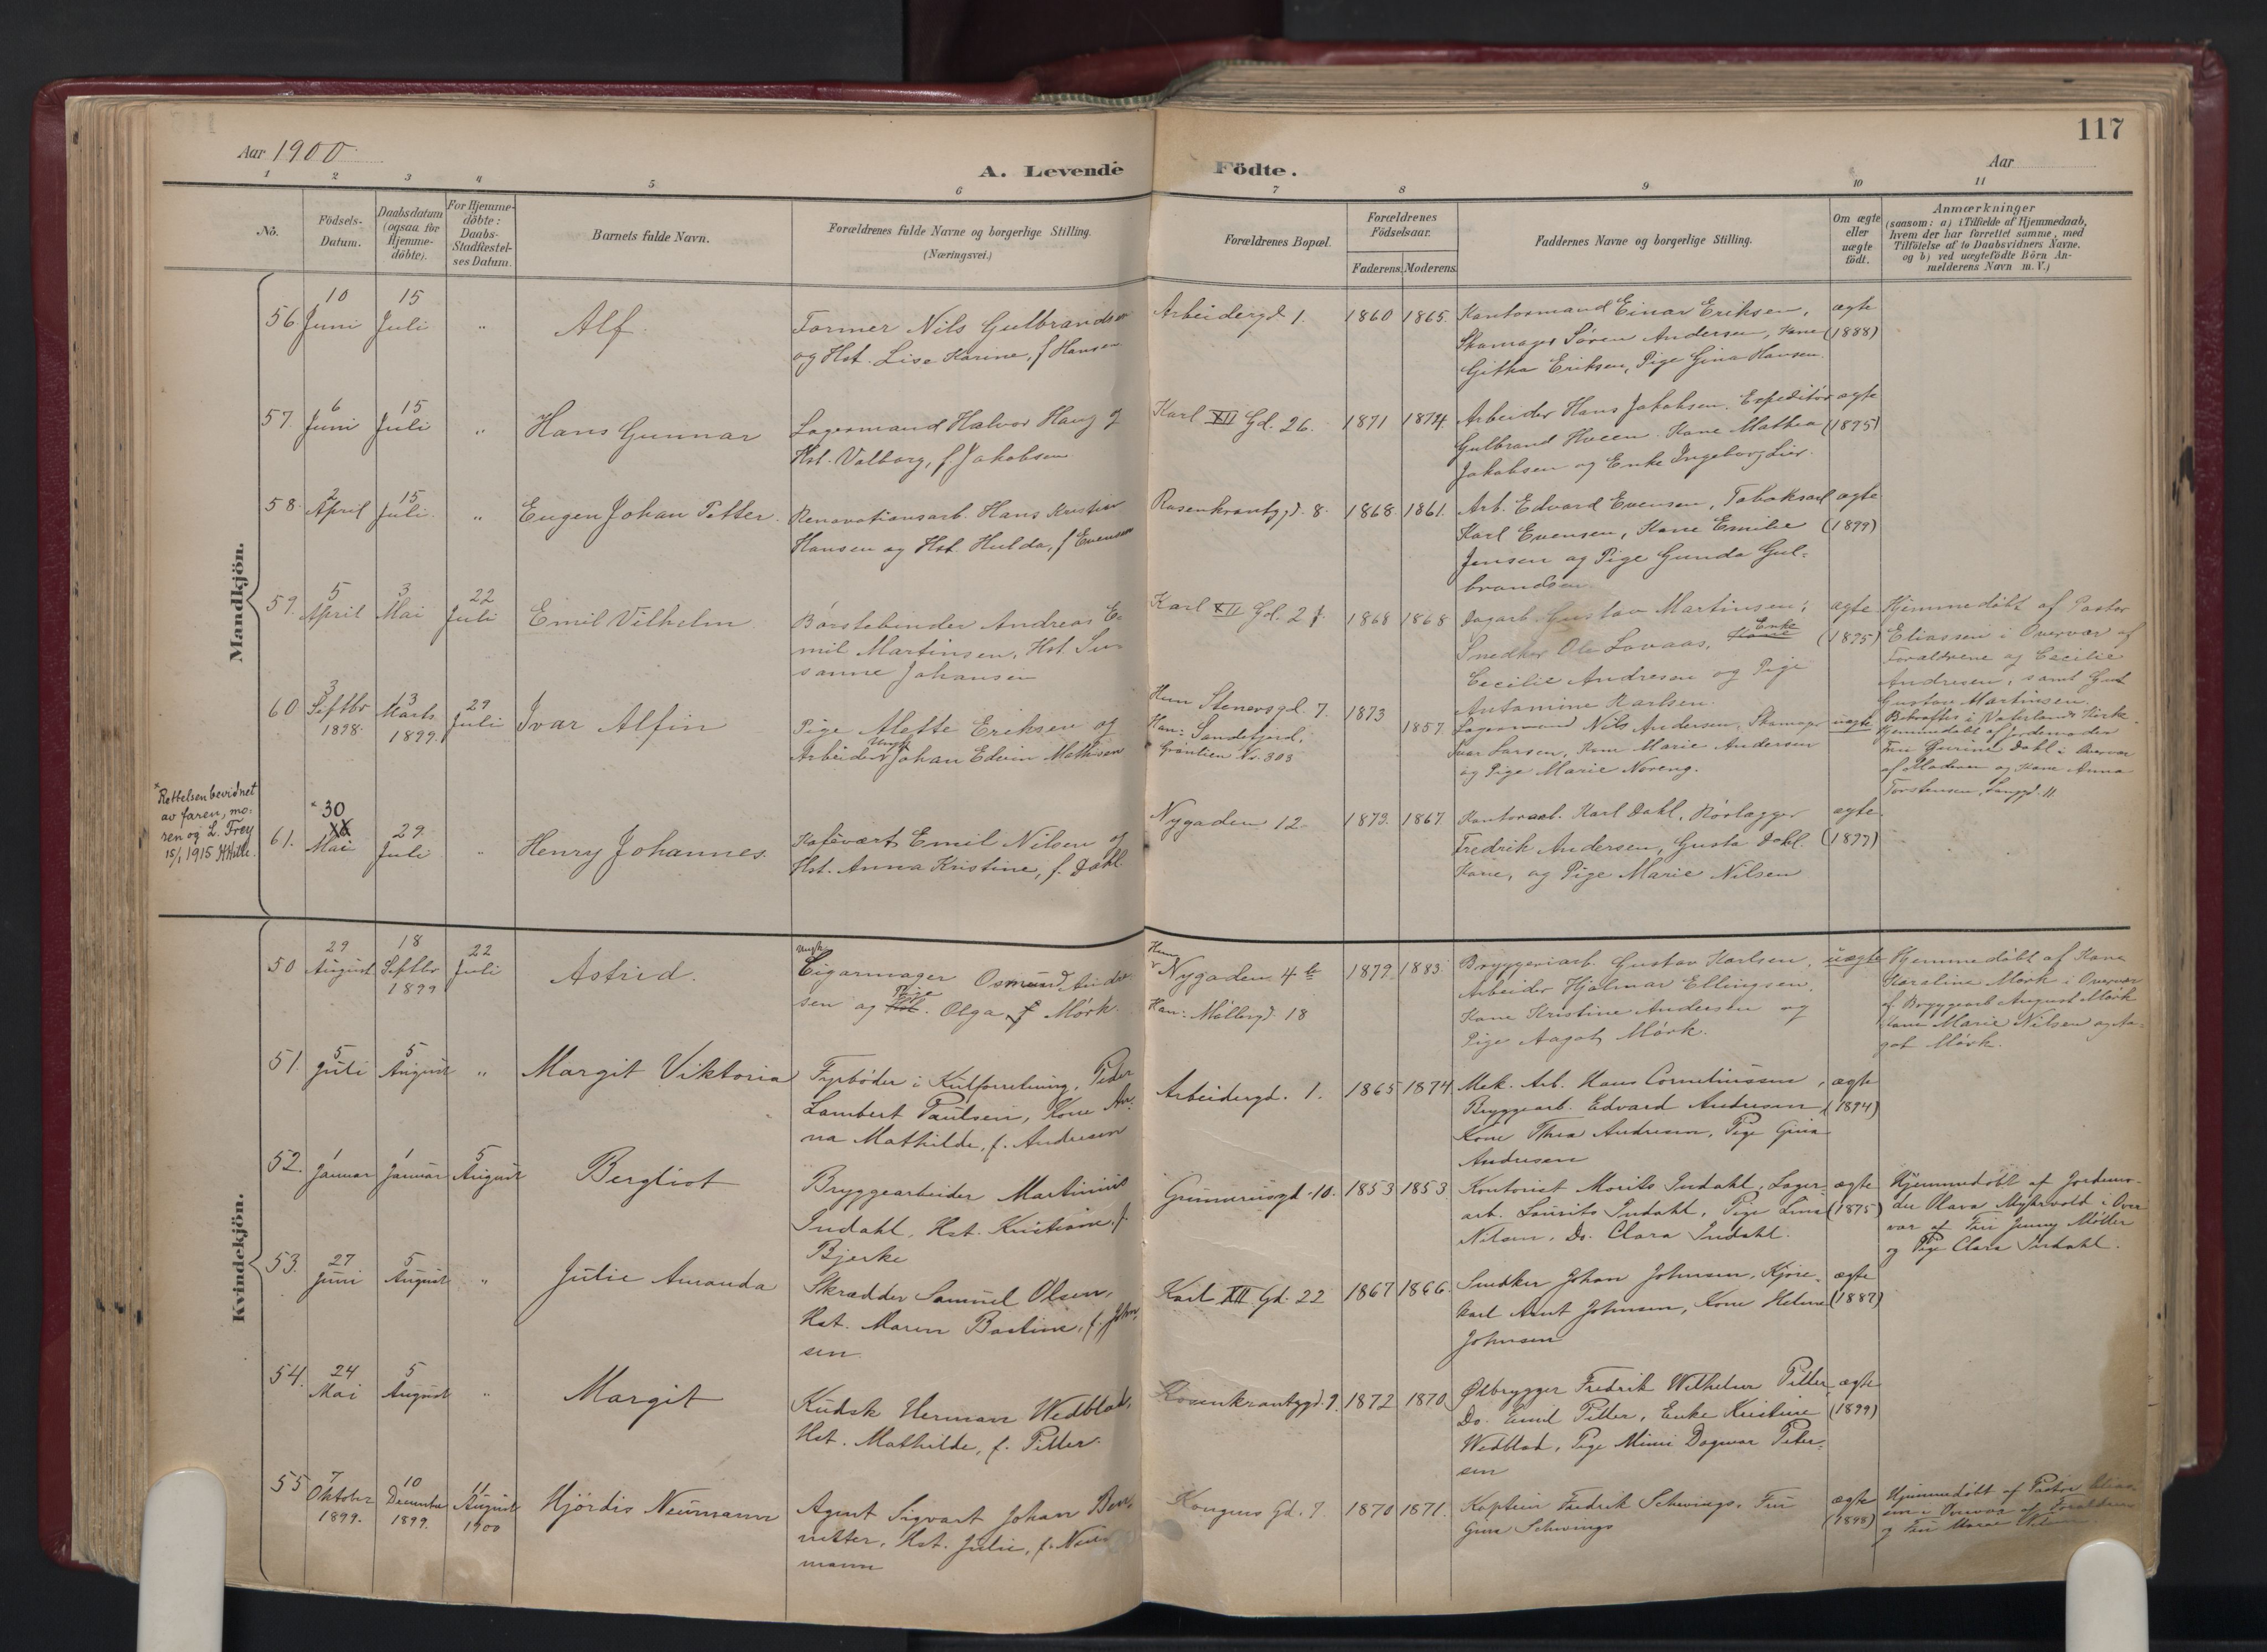 117
Aar 1900
A. Levende Födte.
Aar
1 2 3 4 5 6 7 8 9 10 11
No.
Födsels-Datum.
Daabsdatum (ogsaa for Hjemme-döbte).
For Hjemme-döbte: Daabs-Stadfæstel-ses Datum.
Barnets fulde Navn.
Forældrenes fulde Navne og borgerlige Stilling. (Næringsvei.)
Forældrenes Bopæl.
Forældrenes Födselsaar.
Faderens. Moderens.
Faddernes Navne og borgerlige Stilling.
Om ægte eller uægte födt.
Anmærkninger
(saasom: a) i Tilfælde af Hjemmedaab,
hvem der har forrettet samme, med
Tilföielse af to Daabsvidners Navne.
og b) ved uægtefödte Börn An-
melderens Navn m. V.)
Mandkjön.
56. 10 Juni 15 Juli " Alf.
Former Nils Gulbrandsen
og Hst. Lise Karine, f Hansen
Arbeidergd 1. 1860 1865.
Kontormand Einar Eriksen,
Skomager Søren Andersen, Kone
Githa Eriksen, Pige Gina Hansen.
ægte (1888)
57. 6 Juni 15 Juli " Hans Gunnar
Lagermand Halvor Haug og
Hst. Valborg, f Jakobsen
Karl XII Gd. 26. 1871 1874.
Arbeider Hans Jakobsen. Expeditør
Gulbrand Hveen. Kone Mathea
Jakobsen og Enke Ingeborg Lier.
ægte (1895)
58. 2 April 15 Juli. " Eugen Johan Petter.
Renovationsarb. Hans Kristian
Hansen og Hst. Hulda, f Evensen
Rosenkrantzgd. 8. 1868. 1861.
Arb. Edvard Evensen, Tobaksarb
Karl Evensen, Kone Emilie
Jensen og Pige Gunda Gul-
brandsen
ægte (1899)
59. 5 April 3 Mai 22 Juli Emil Vilhelm
Børstebinder Andreas E-
mil Martinsen, Hst. Su-
sanne Johansen
Karl XII Gd. 27. 1868 1868
Dagarb. Gustav Martinsen,
Snedker Ole Lovaas, Kone Enke
Cecilie Andresen og Pige
Antomine Karlsen.
ægte (1895)
Hjemmedøbt af Pastor
Eliassen i Overvær af
Forældrene og Cecilie
Andresen, samt
Gustav Martinsen.
Bekræftes i Vaterlands Kirke.
60. 3 Septbr 1898. 13 Marts 1899. 29 Juli Ivar Alfin
Pige Alette Eriksen og
Arbeider Ungk Johan Edvin Mathisen
Hun Stenersgd. 7.
Han: Sandefjord,
Grønlien No. 303
1873 1857
Lagermand Nils Andersen, Skomager
Ivar Larsen, Kone Marie Andersen
og Pige Marie Noreng.
uægte
Hjemmedøbt af Jordemoder
Fru Gurine Dahl i Overvær
af Moderen og Kone Anna
Torstensen, Langgd. 11
* Rettelsen bevidnet
av faren, mo-
ren og L. Frey
15/1 1915 HHille.
61. * 30 Mai 29. Juli " Henry Johannes.
Kafévært Emil Nilsen og
Hst. Anna Kristine, f. Dahl
Nygaden 12 1873. 1867.
Kontorarb. Karl Dahl, Rørlægger
Fredrik Andersen, Gusta Dahl.
Kone, og Pige Marie Nilsen
ægte. (1897)
Kvindekjön.
50. 29 August 18 Septbr 1899 22 Juli Astrid.
Ungk. Cigarmager Osmund Ander-
sen og Hst. Pige Olga f Mørk.
Hun Nygaden 4 b
Han: Møllergd. 18
1879. 1883.
Bryggeriarb. Gustav Karlsen,
Arbeider Hjalmar Ellingsen,
Kone Kristine Andersen og
Pige Aagot Mørk.
uægte
Hjemmedøbt af Kone
Karoline Mørk i Overvær
af Bryggearb August Mørk
Kone Marie Nilsen og Aa-
got Mørk.
51. 5 Juli 5 August " Margit Viktoria
Fyrbøder i Kulforretning, Peder
Lambert Paulsen, Kone An-
na Mathilde, f. Andresen
Arbeidergd. 1. 1865 1874
Mek. Arb. Hans Corneliussen,
Bryggearb. Edvard Andresen,
Kone Thea Andresen, Pige Gina
Andresen
ægte (1894)
52. 1 Januar 1 Januar 5 August Bergliot
Bryggearbeider Martinius
Indahl, Hst. Kristiane, f.
Bjerke
Grunerusgd. 10. 1853 1853
Kontorist Morits Indahl, Lager-
arb. Laurits Indahl, Pige Lina
Nilsen, Do. Clara Indahl.
ægte (1875)
Hjemmedøbt af Jordemo-
der Olava Myhrvold i Over-
vær af Fru Jenny Møller
og Pige Clara Indahl.
53. 27 Juni 5 August " Julie Amanda
Skrædder Samuel Olsen,
Hst. Maren Bastine, f. John-
sen
Karl XII Gd. 22 1867 1866.
Snedker Johan Johnsen, Kjøre-
karl Arnt Johnsen, Kone Helene
Johnsen
ægte (1887)
54. 24 Mai 5 August " Margit
Kudsk Herman Wedblad,
Hst. Mathilde, f. Pitter.
Rosenkrantzgd. 9. 1872 1870
Ølbrygger Fredrik Wilhelm Pitter,
Do. Emil Pitter, Enke Kristine
Wedblad, Pige Mimi Dagmar Peder-
sen
ægte (1899)
55 7 Oktober 1899. 10 December 1899. 11 August 1900 Hjördis Neumann
Agent Sigvart Johan Ben-
netter, Hst. Julie, f. Neu-
mann
Kongens Gd. 9 1870 1871.
Kaptein Fredrik Schwings, Fru
Gina Schwings
ægte (1898)
Hjemmedøbt af Pastor Elias-
sen i Overvær af Forældrene
og Fru Marie